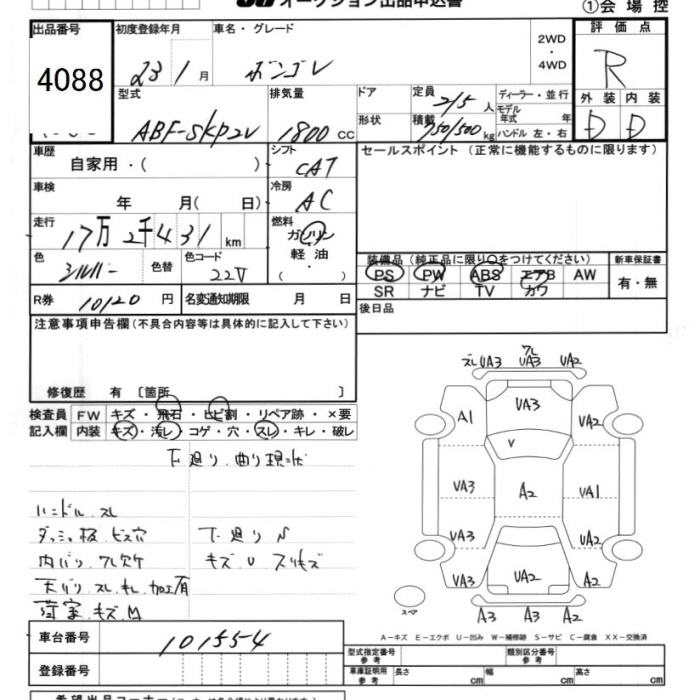 オークション出品申込書
①会場控
出品番号 初度登録年月 車名・グレード 2WD ・ 4WD 評価点
4088 23 1 月 ボンゴV R
型式 排気量 ドア 定員 2/5 人 ディーラー・並行 外装 内装
ABF-SKP2V 1800 CC 形状 積載 750/500 kg モデル年式 年 ハンドル 左・右 D D
車歴 自家用・( ) シフト CAT セールスポイント (正常に機能するものに限ります)
車検 年 月( 日) 冷房 AC
走行 17万 2千 431 km 燃料 ガソリン
色 シルバー 色替 色コード 22V 軽油 ・ ( )
装備品 (純正品に限り○をつけてください) 新車保証書
PS PW ABS エアB AW 有・無
SR ナビ TV カワ
R券 10120 円 名変通知期限 月 日 後日品
注意事項申告欄(不具合内容等は具体的に記入して下さい)
修復歴 有 〔箇所 〕
検査員 FW キズ・飛石・ヒビ割・リペア跡・×要
記入欄 内装 キズ・汚レ・コゲ・穴・スレ・キレ・破レ
下廻り 曲り 現状
ハンドル スレ
ダッシュ板 ビス穴 下廻り S
内バリ ワレ欠ケ キズ U スリキズ
天バリ スレ キレ 加工有
荷室 キズ M
ズレ UA3 ワレ UA3 UA2
UA3
A1 UA2
V
UA3 A2 UA1
UA3 UA2
UA3 UA2 A2
スペア A3 A3 A2
A－キズ E－エクボ U－凹み W－補修跡 S－サビ C－腐食 XX－交換済
車台番号 101554
登録番号
型式指定番号 参考 類別区分番号 参考
車庫証明用 参考 長さ cm 幅 cm 高さ cm
希望出品コーナー